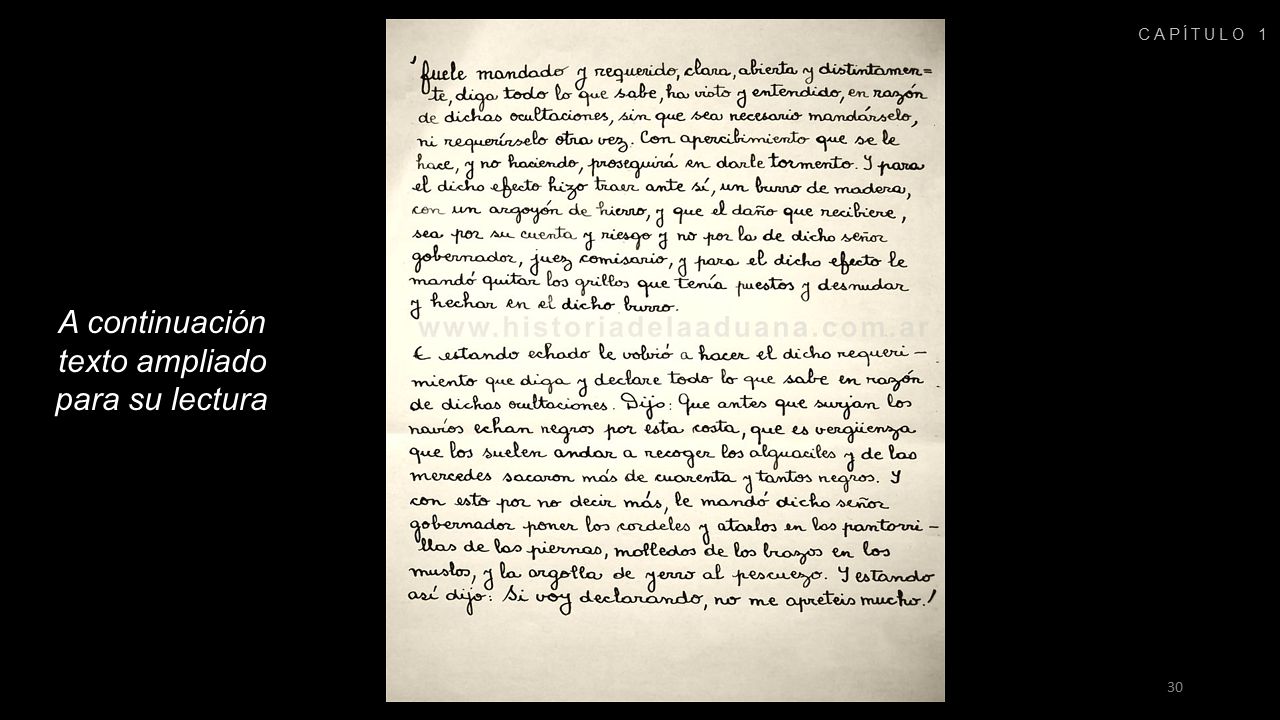 CAPÍTULO 1
'fuele mandado y requerido, clara, abierta y distintamen=
te, diga todo lo que sabe, ha visto y entendido, en razón
de dichas ocultaciones, sin que sea necesario mandárselo,
ni requerírselo otra vez. Con apercibimiento que se le
hace, y no haciendo, proseguirá en darle tormento. Y para
el dicho efecto hizo traer ante sí, un burro de madera,
con un argoyón de hierro, y que el daño que recibiere,
sea por su cuenta y riesgo y no por la de dicho señor
gobernador, juez comisario, y para el dicho efecto le
mandó quitar los grillos que tenía puestos y desnudar
y hechar en el dicho burro.
www.historiadelaaduana.com.ar
E estando echado le volvió a hacer el dicho requeri-
miento que diga y declare todo lo que sabe en razón
de dichas ocultaciones. Dijo: Que antes que surjan los
navíos echan negros por esta costa, que es vergüenza
que los suelen andar a recoger los alguaciles y de las
mercedes sacaron más de cuarenta y tantos negros. Y
con esto por no decir más, le mandó dicho señor
gobernador poner los cordeles y atarlos en las pantorri-
llas de las piernas, molledos de los brazos en los
muslos, y la argolla de yerro al pescuezo. Y estando
así dijo: Si voy declarando, no me apreteis mucho.'
A continuación
texto ampliado
para su lectura
30